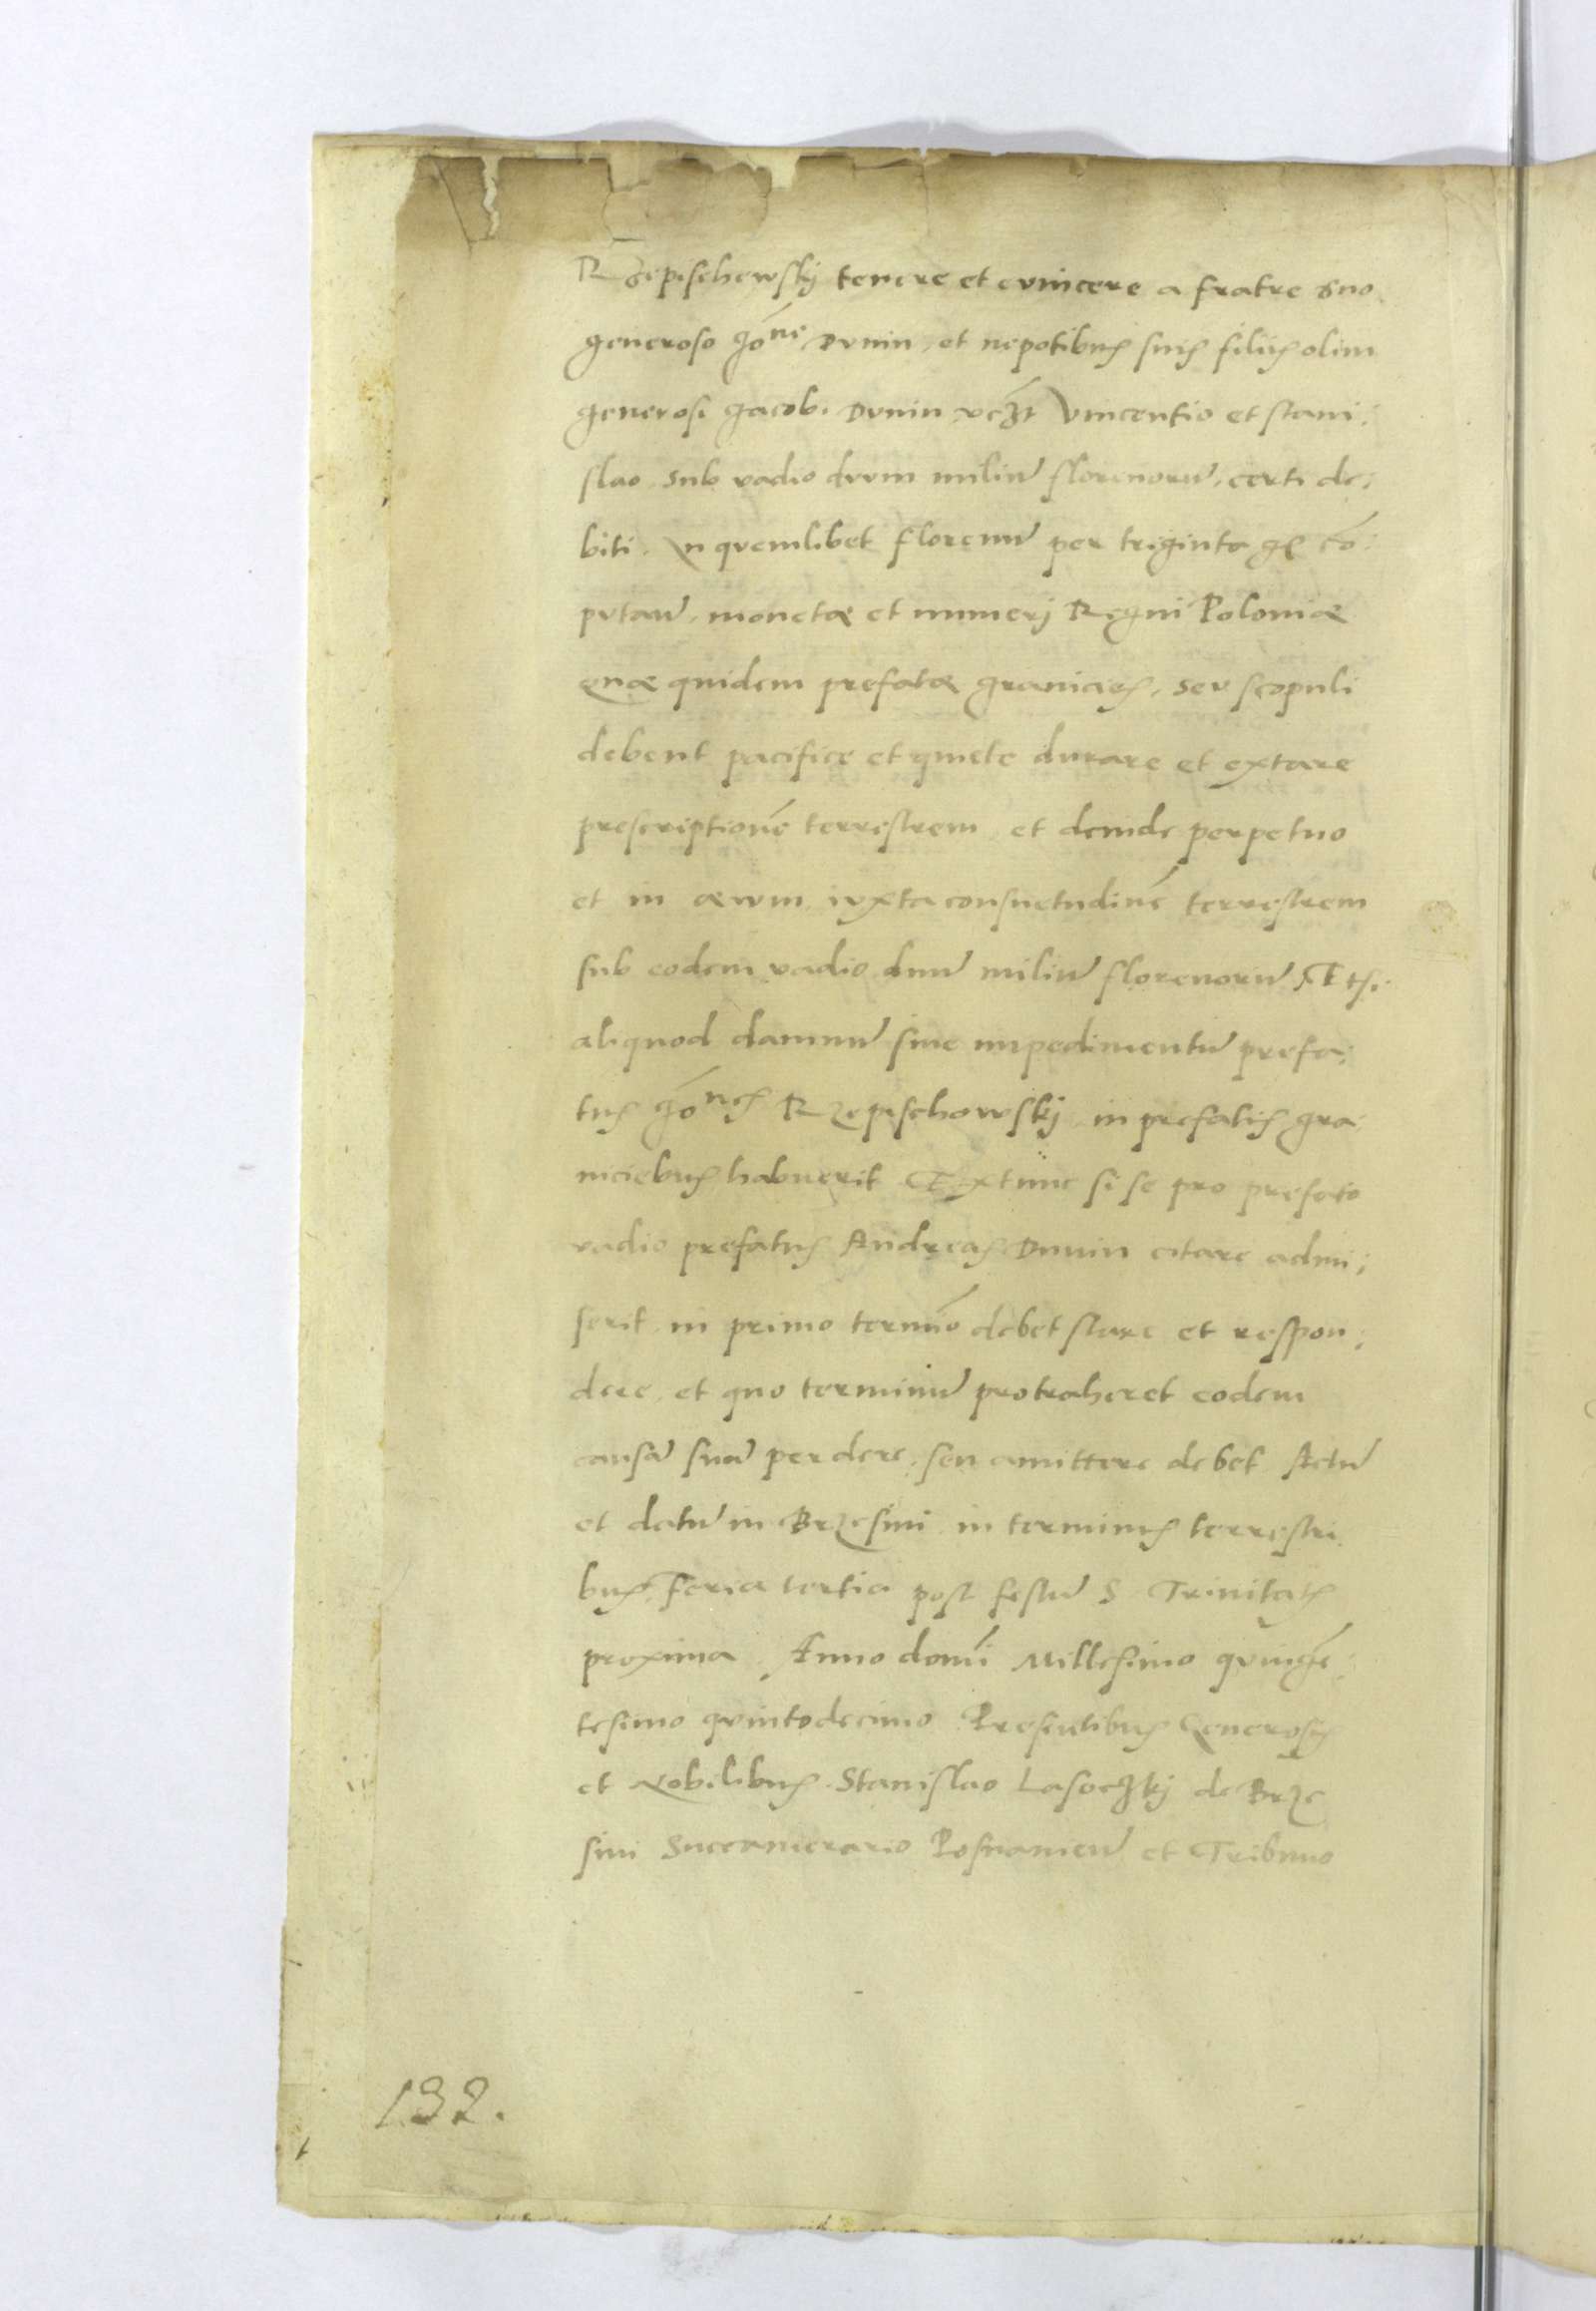 Rzepischewskij tenere et evincere a fratre suo
generoso Jo͞ne Dvnin, et nepotibus suis filiis olim
generosi Jacobi Dvnin vcz̃t Vincentio et stani:
slao. sub vadio dvvm miliũ florenorũ, certi de:
biti. In qvemlibet florenũ per triginta gr̃ cō:
pvtañ. monetæ et numerj Regni Poloniæ
quæ quidem prefatæ granicies, sev scopuli
debent pacifice et quiete durare et extare
prescriptionẽ terrestrem, et deinde perpetuo
et in ævvm, ivxta consuetudinẽ terrestrem
sub eodem vadio duũ miliũ florenorũ Et si
aliquod damnũ sive impedimentũ prefa:
tus Jo͞nes Rzepischowskij in prefatis gra
niciebus habuerit Extunc si se pro prefato
vadio prefatus Andreas Dunin citare admi:
serit in primo termīo debet stare et respon:
dere, et quo terminũ protraheret eodem
causã suã perdere, seu amittere debet Actũ
et datũ in Brzesini in terminis terrestri
bus, Feria tertia post festũ S Trinitatis
proxima. Anno domĩ Millesimo qvingẽ:
tesimo qvintodecimo Presentibus Generosis
et Nobilibus. Stanislao Lasoczkij de Brze
sini Succamerario Posnanieñ et Tribuno
132.